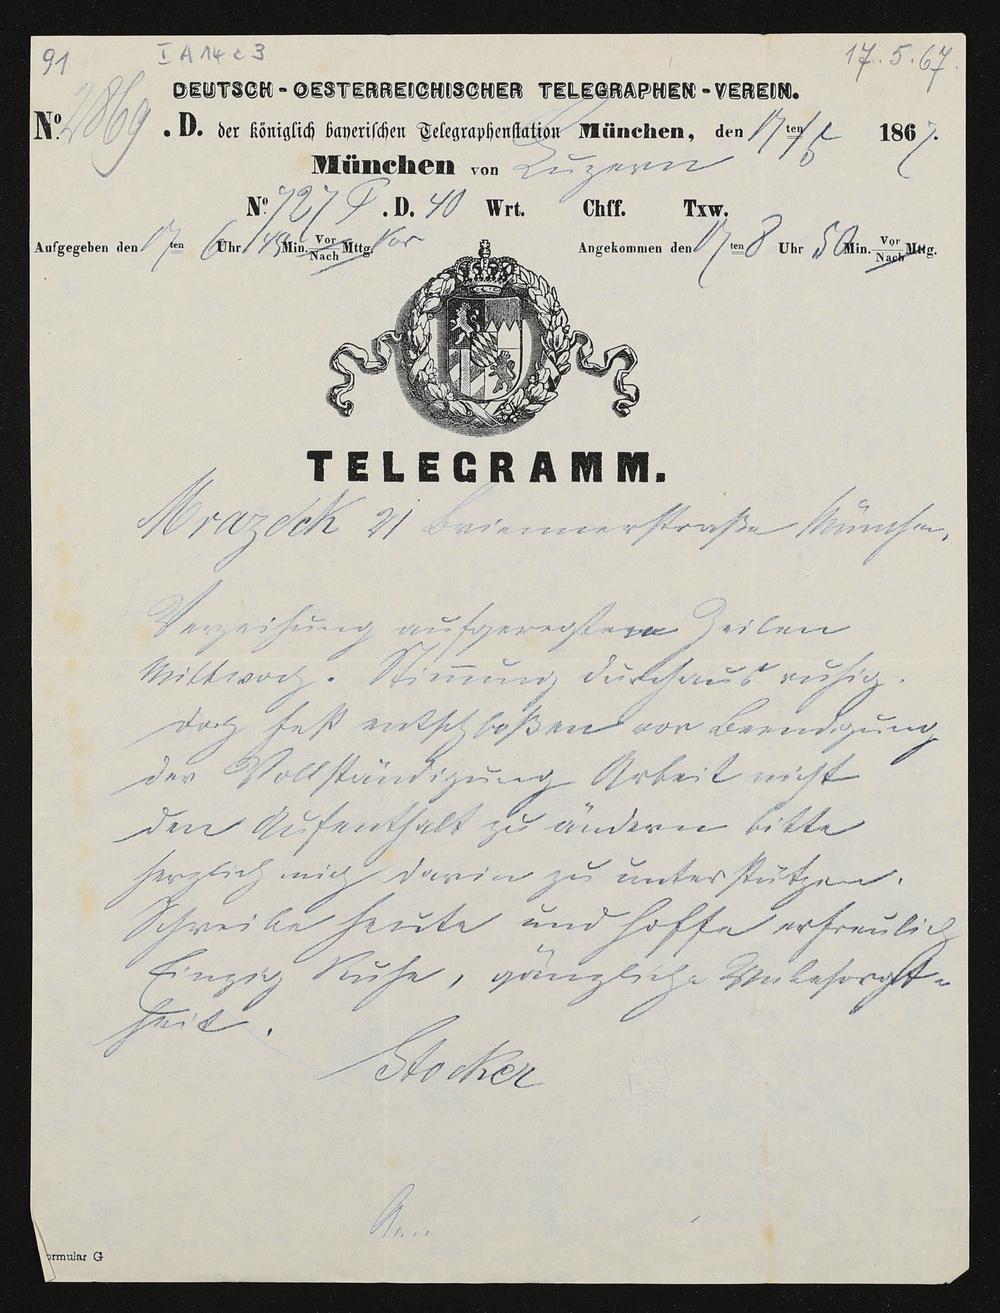 91 I A 14 c 3 17. 5. 67.
DEUTSCH-OESTERREICHISCHER TELEGRAPHEN-VEREIN.
No. 2869 . D. der königlich bayerischen Telegraphenstation München, den 17ten/5 1867.
München von Luzern
No. 727 . D. 40 Wrt. Chff. Txw.
Aufgegeben den 17ten 6 Uhr 45 Min. Vor/Nach Mttg. Vor Angekommen den 17ten 8 Uhr 50 Min. Vor/Nach Mttg.
TELEGRAMM.
Mrazeck 21 Briennerstraße München.
Verzeihung aufgeregten Zeilen
Mittwoch. Stimmung durchaus ruhig.
doch fest entschloßen vor Beendigung
der Vollständigung Arbeit nicht
den Aufenthalt zu ändern bitte
herzlich mich darin zu unterstützen.
Schreibe heute und hoffe erfreulich
Einzig Ruhe, gänzliche Unbesorgt-
heit.
Stocker
ormular G